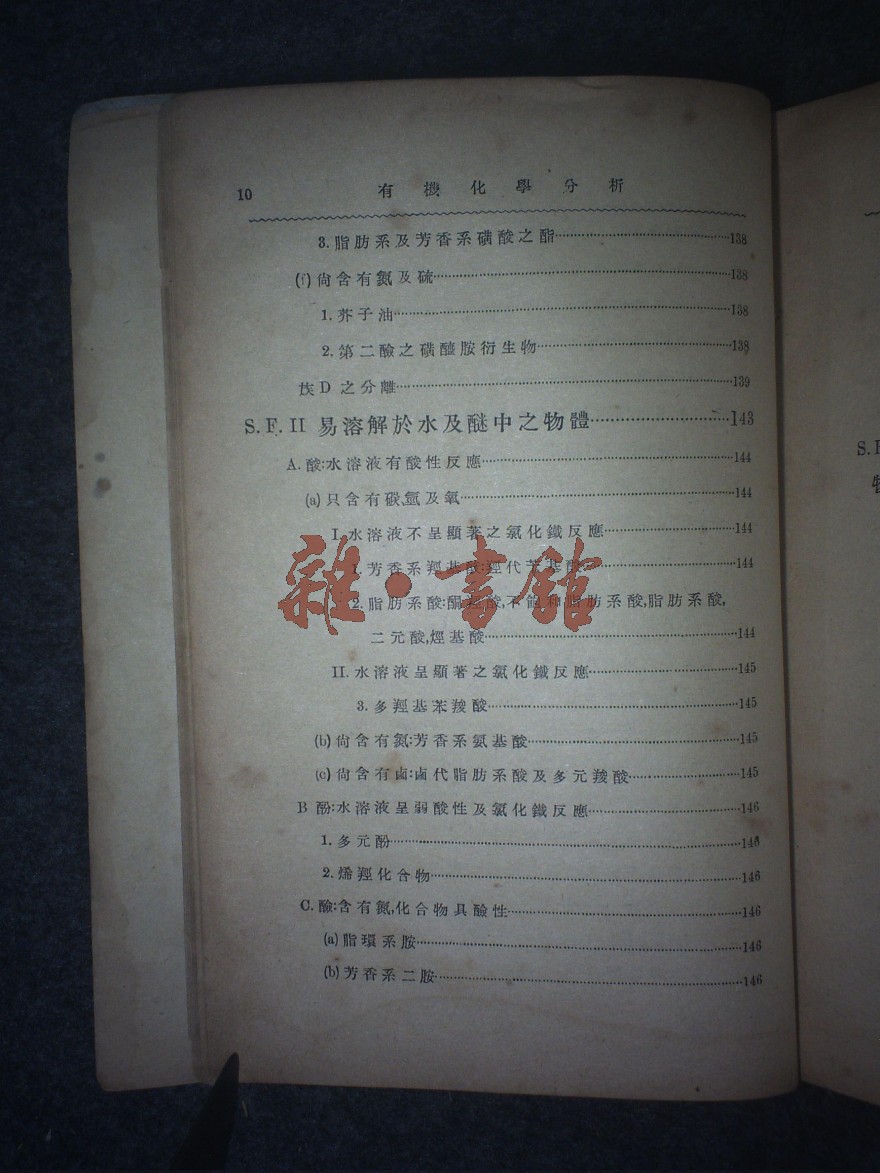 10 有機化學分析
3. 脂肪系及芳香系磺酸之酯 138
(f) 尙含有氮及硫 138
1. 芥子油 138
2. 第二鹼之磺醯胺衍生物 138
族D之分離 139
S. F. II 易溶解於水及醚中之物體 143
A. 酸:水溶液有酸性反應 144
(a) 只含有碳,氫及氧 144
I. 水溶液不呈顯著之氯化鐵反應 144
1. 芳香系羥基酸:羥代苄基酸 144
2. 脂肪系酸:酮羥酸,不飽和脂肪系酸,脂肪系酸,
二元酸,羥基酸 144
II. 水溶液呈顯著之氯化鐵反應 145
3. 多羥基苯羧酸 145
(b) 尙含有氮:芳香系氨基酸 145
(c) 尙含有鹵:鹵代脂肪系酸及多元羧酸 145
B 酚:水溶液呈弱酸性及氯化鐵反應 146
1. 多元酚 146
2. 烯羥化合物 146
C. 鹼:含有氮,化合物具鹼性 146
(a) 脂環系胺 146
(b) 芳香系二胺 146
雜·書館
S.F